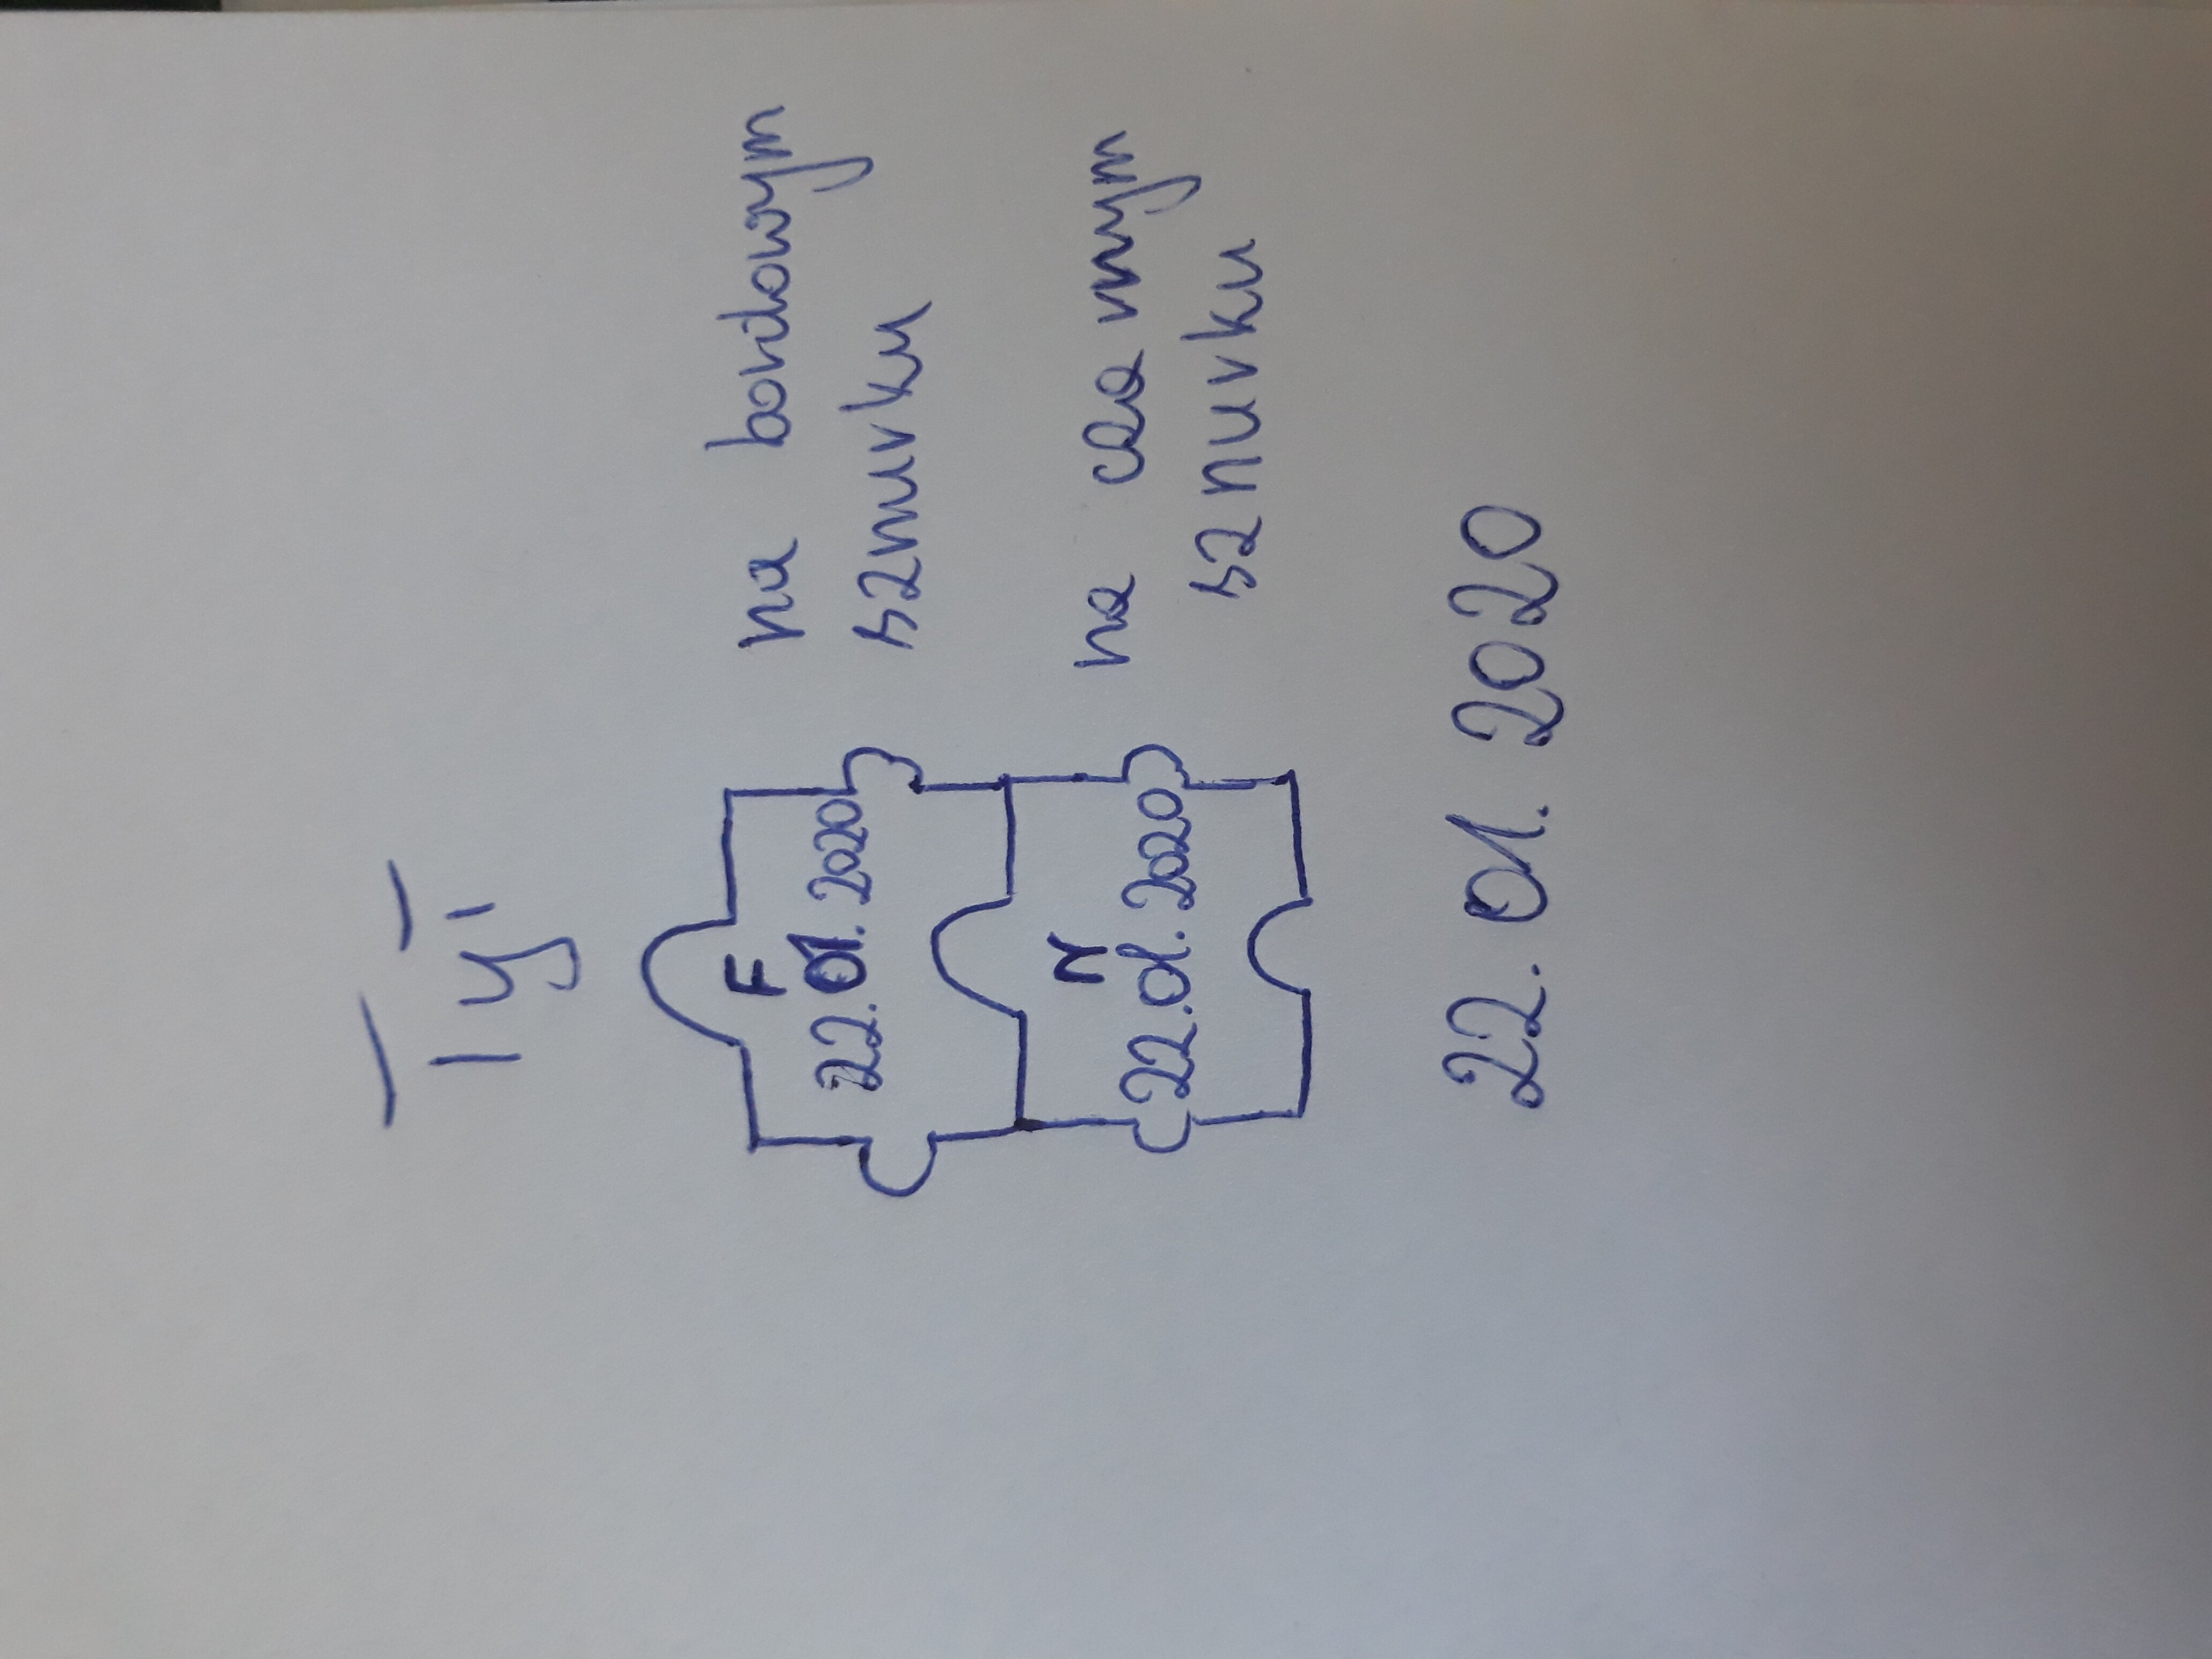 tył
F
22.01.2020
na bordowym
sznurku
M
22.01.2020
na czarnym
sznurku
22.01.2020